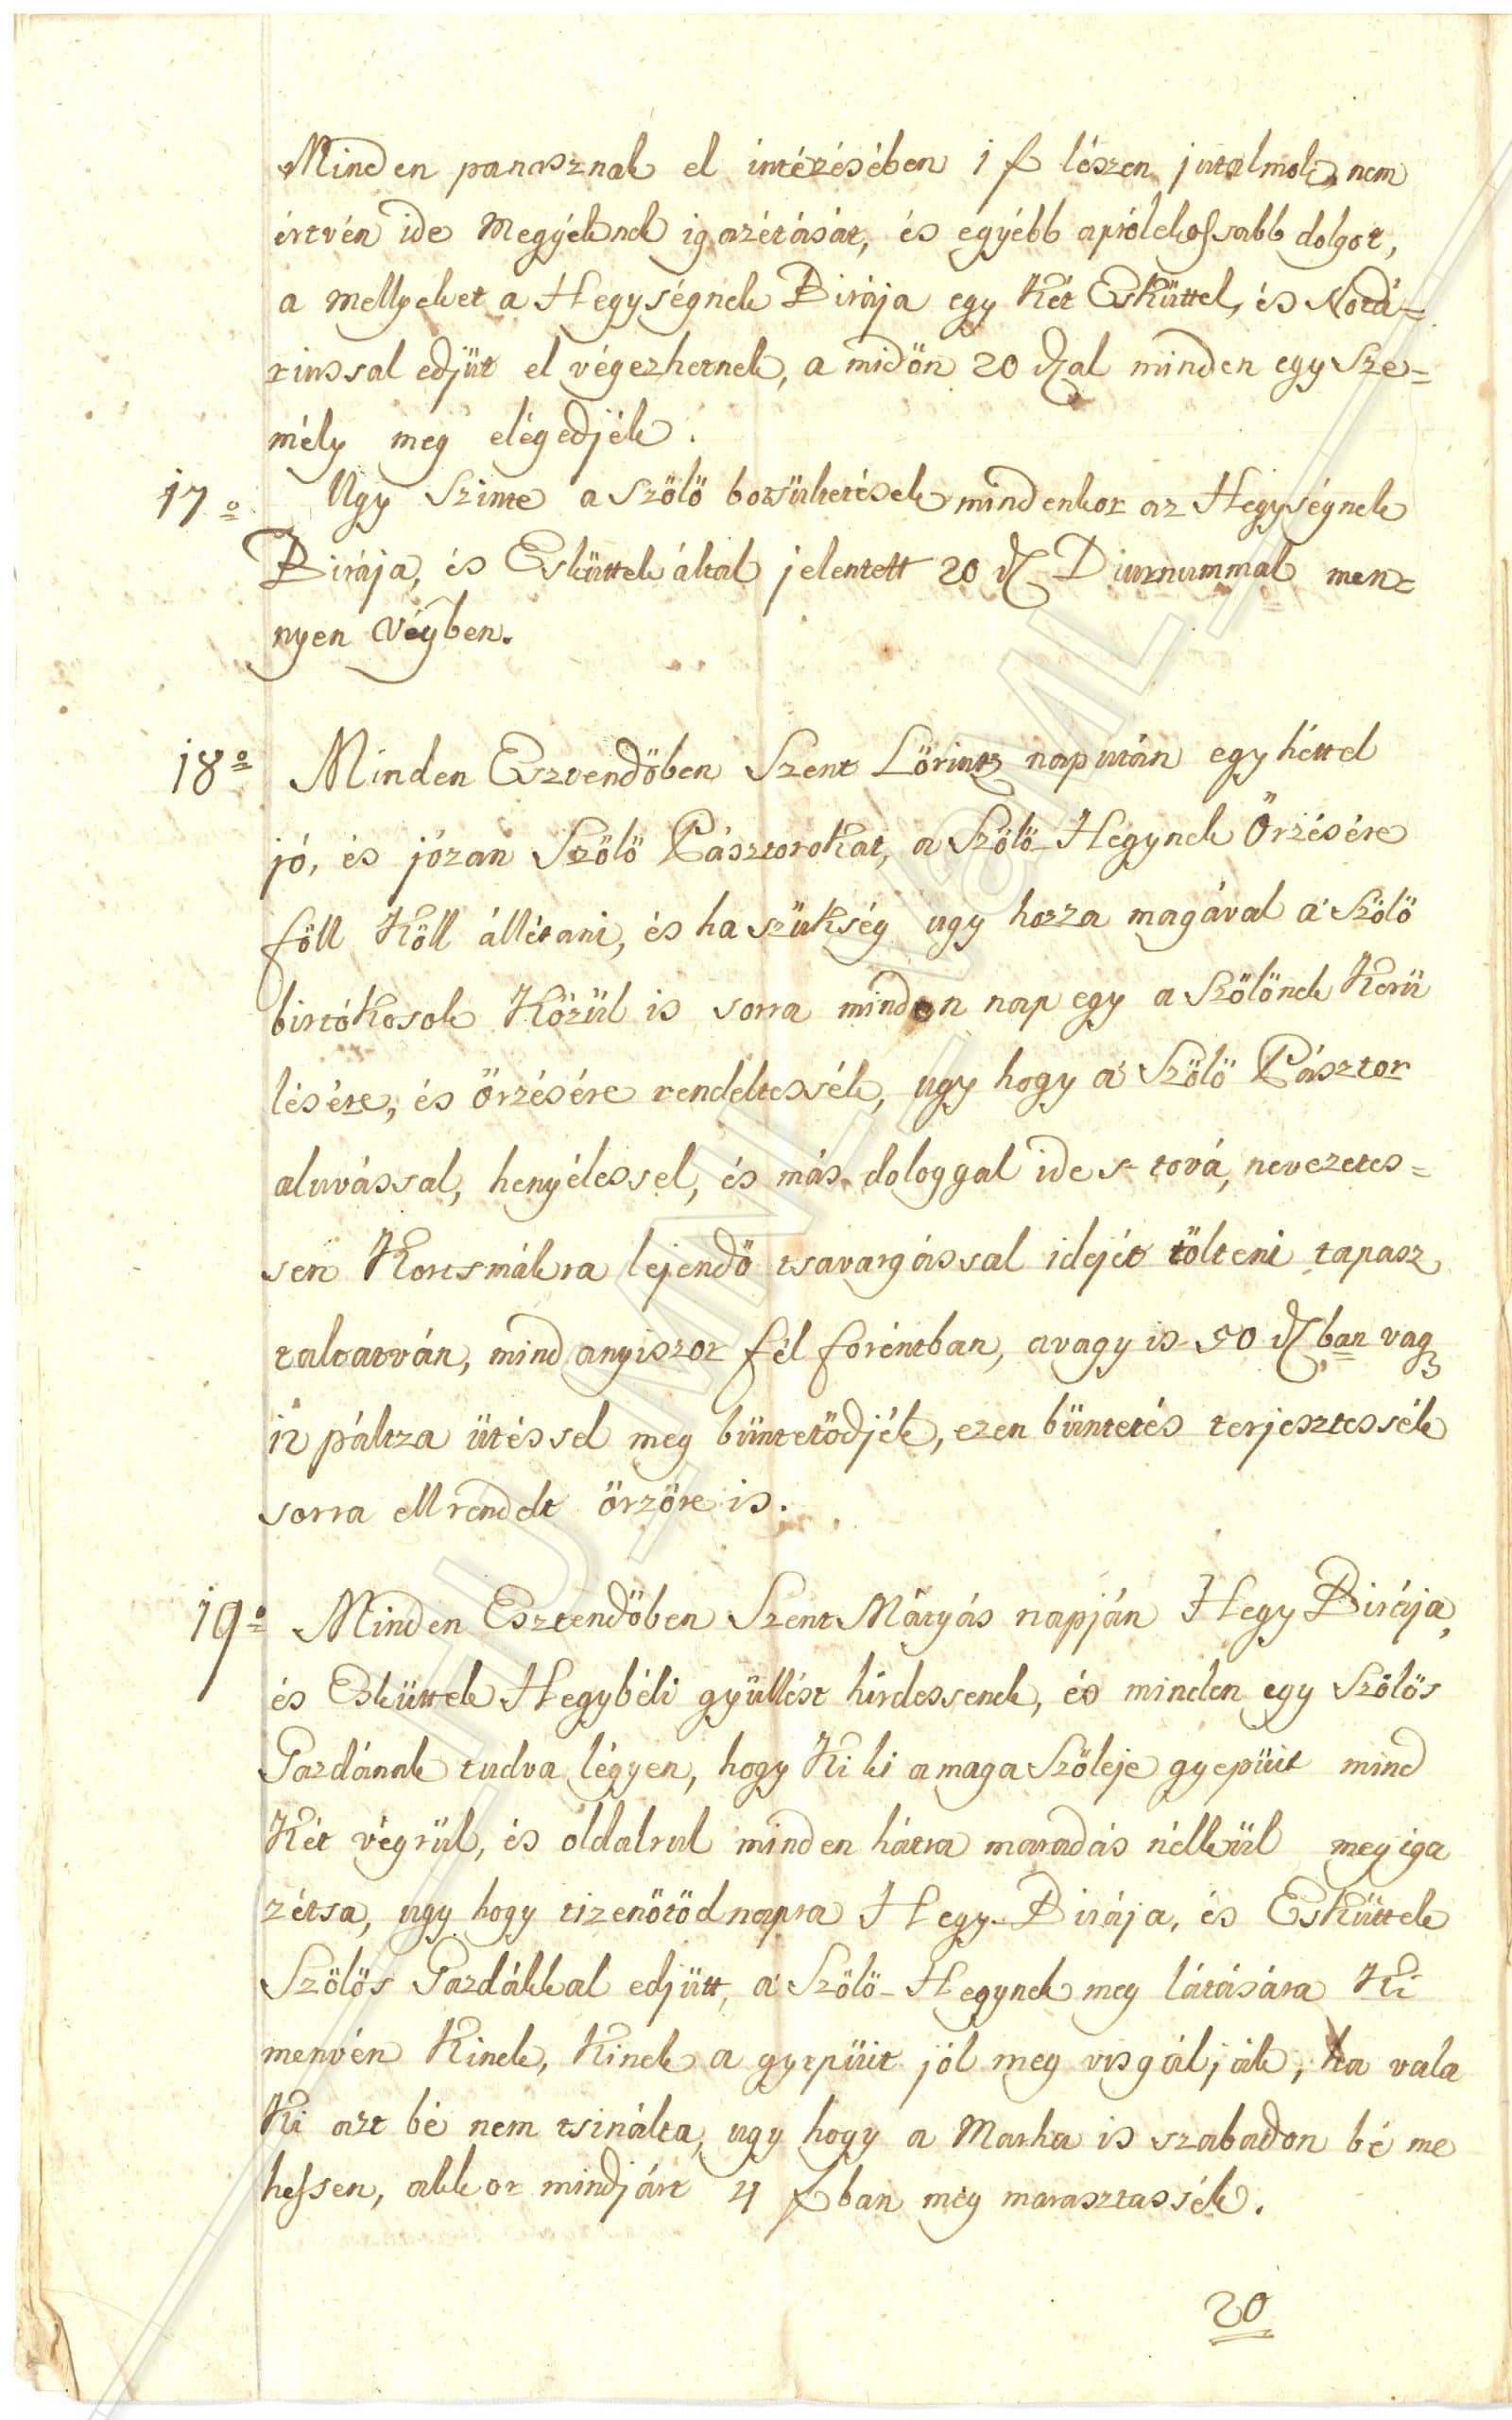 Minden panasznak el intézésében 1 f lészen jutalmok, nem
értvén ide Megyéknek igazétását, és egyébb aprólékossabb dolgot,
a mellyeket a Hegységnek Birája egy Két Esküttel, és Notá=
riussal edjüt el végezhetnek, a midön 20 dal minden egy Sze=
mély meg elégedjék.
17o Ugy Szinte a Szölö botsültetések mindenkor az Hegységnek
Birája, és Esküttek által jelentett 20 d Diurnummal men=
nyen Végben.
18o Minden Esztendöben Szent Lörintz nap után egy héttel
jó, és józan Szölö Pásztorokat, a Szölö-Hegynek Örzésére
föll Köll állétani, és ha szükség ugy hozza magával a' Szölö
birtókosok Közül is sorra minden nap egy a Szölönek Kerü
lésére, és örzésére rendeltessék, ugy hogy a' Szölö Pásztor
aluvással, henyélessel, és más dologgal ide s tová, nevezetes=
sen Kortsmákra lejendö tsavargással idejét tölteni tapasz
taltatván, mind anyiszor fél foréntban, avagy is 50 dban vagy
12 páltza ütéssel meg büntetödjék, ezen büntetés terjesztessék
sorra ell rendelt örzöre is.
19o Minden Esztendöben Szent Mátyás napján Hegy Birája,
és Esküttek Hegybéli gyüllést hirdessenek, és minden egy Szölös
Gazdának tudva légyen, hogy Ki ki a maga Szöleje gyepüit mind
Két végrül, és oldalrul minden hátra maradás nélkül meg iga
zétsa, ugy hogy tizenötöd napra Hegy-Birája, és Esküttek
Szölös Gazdákkal edjütt, a' Szölö-Hegynek meg látására Ki
menvén Kinek, Kinek a gyepüit jól meg visgálják, ha vala
Ki azt bé nem tsinálta, ugy hogy a Marha is szabadon bé me
hessen, akkor mindjárt 4 fban meg marasztassék.
20
HU_MNL_VSML